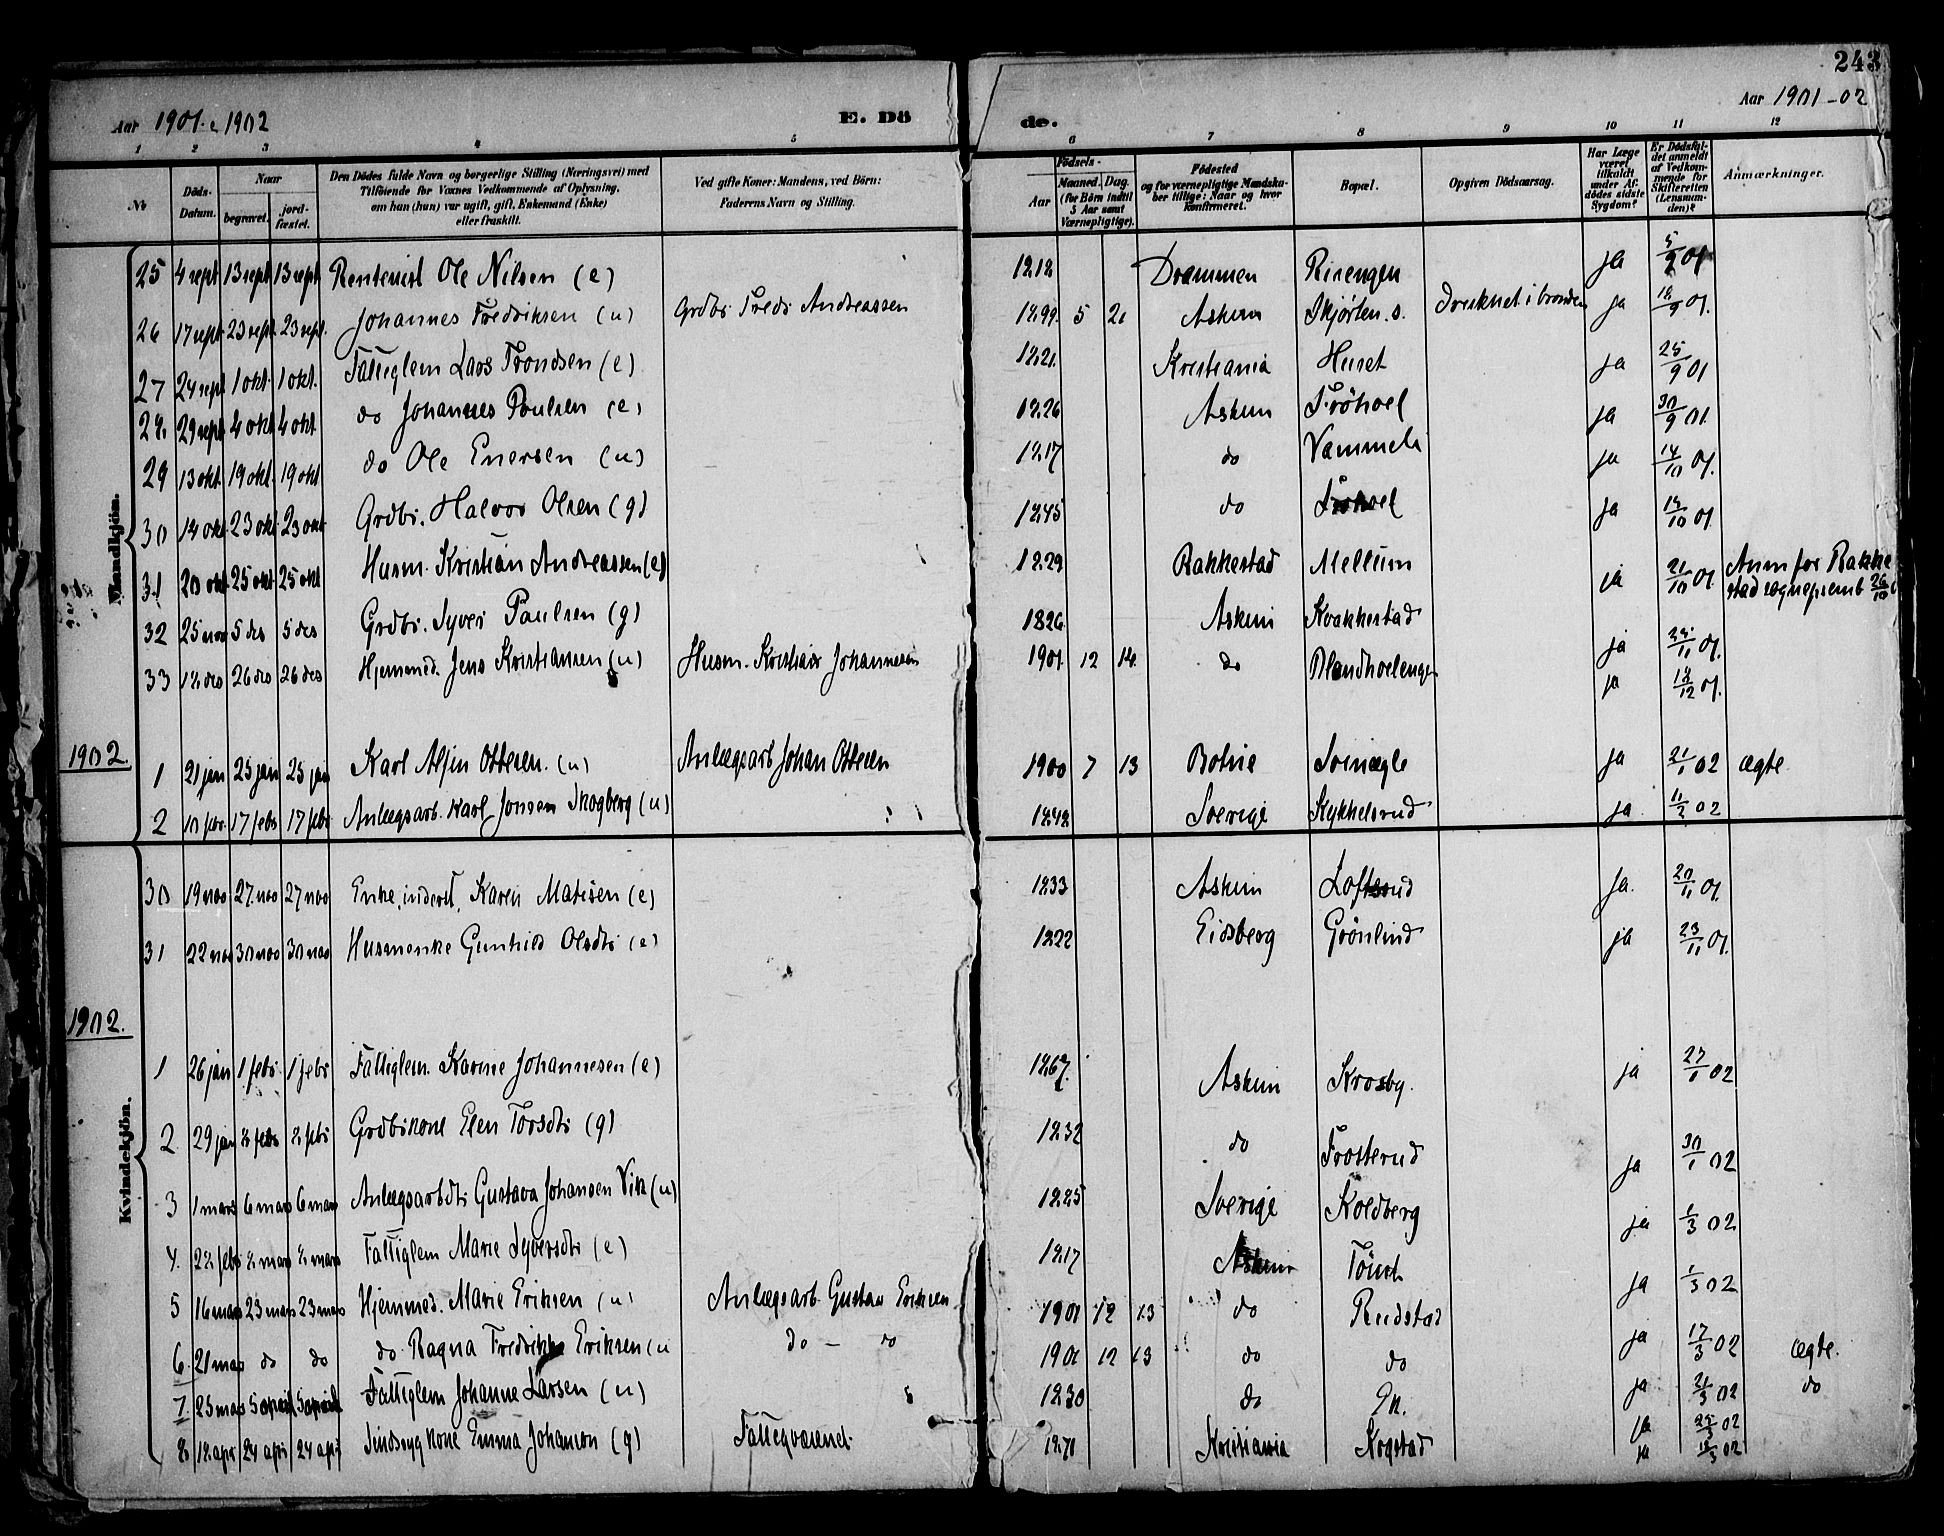 243
Aar 1901 & 1902 E. Dö de. Aar 1901-02
1 2 3 4 5 6 7 8 9 10 11 12
No Döds-Datum. Naar begravet. jord-fæstet. Den Dödes fulde Navn og borgerlige Stilling (Næringsvei) med Tilföiende for Voxnes Vedkommende af Oplysning, om han (hun) var ugift, gift, Enkemand (Enke) eller fraskilt. Ved gifte Koner: Mandens, ved Börn: Faderens Navn og Stilling. Födsels- Aar Maaned. Dag. (for Börn indtil 5 Aar samt Værnepligtige). Födested og for værnepligtige Mandskaber tillige: Naar og hvor konfirmeret. Bopæl. Opgiven Dödsaarsag. Har Læge været tilkaldt under Afdödes sidste Sygdom? Er Dödsfaldet anmeldt af Vedkommende for Skifteretten (Lensmanden)? Anmærkninger.
Mandkjön.
25 4 sept 13 sept 13 sept Rentenist Ole Nilsen (e) 1818 Drammen Risengen ja 5/9 01
26 17 sept 23 sept. 23 sept. Johannes Fredriksen (u) Grdbr Fredr Andreassen 1899 5 21 Askim Skjørten. s. Drucknet i brønden ja 18/9 01.
27 24 sept 1 okt. 1 okt. Fattiglem Lars Trondsen (e) 1821 Kristiania Huset ja 25/9 01
28. 29 sept 4 okt 4 okt do Johannes Poulsen (e) 1826 Askim Frøhoel ja 30/9 01.
29 13 okt 19 okt. 19 okt do Ole Enersen (u) 1817 do Vammeli ja 14/10 01.
30 18 okt 23 okt 23 okt Grdbr. Halvor Olsen (g) 1845 do Frøhoel ja 18/10 01
31 20 okt 25 okt 25 okt Husm. Kristian Andreassen (e) 1829 Rakkestad Mellum ja 21/10 01 Anm for Rakke
stad sogneprest 26/10
32 25 nov 5 des 5 des Grdbr. Syver Paulsen (g) 1826 Askim Krakkestad ja 28/11 01.
33 18 des 26 des 26 des Hjemmed. Jens Kristiansen (u) Husm. Kristian Johannesen 1901 12 14 do Blandhoelengen ja 18/12 01.
1902.
1 21 jan 25 jan 25 jan Karl Alfin Ottesen. (u) Anlægsarb Johan Ottesen 1900 7 13 Botne Svinægle ja 21/1 02 ægte.
2 10 febr. 17 febr 17 febr Anlægsarb. Karl Jonsen Skogberg (u) 1848 Sverige Kykkelsrud ja. 11/2 02
Kvindekjön.
30 19 nov 27 nov 27 nov Enke, inderst, Karen Matisen (e) 1833 Askim Loftsrud Ja. 20/11 01.
31 22 nov 30 nov 30 nov Husmenke Gunhild Olsdtr (e) 1822 Eidsberg Grønlund ja 23/11 01.
1902.
1 26 jan 1 febr. 1 febr Fattiglem. Karine Johannesen (e) 1867. Askim Krosby. ja 27/1 02
2 29 jan 8 febr 8 febr Grdbrkone Elen Torsdtr (g) 1832 do Frosterud ja 30/1 02
3 1 mars 6 mars 6 mars Anlægsarbdtr Gustava Johansen Vik (u) 1885 Sverige Koldberg ja 1/3 02
4. 28 febr 8 mars 8 mars Fattiglem Marie Syversdtr (e) 1817 Askim ja 1/3 02
5 16 mars 23 mars 23 mars Hjemmed. Marie Eriksen (u) Anlægsarb. Gustav Eriksen 1901 12 13 do Rudstad ja 17/3 02 ægte.
6 21 mars do do do Ragna Fredrikke Eriksen (u do - do 1901 12 13 do do ja 21/3 02 do
7. 25 mars 5 april 5 april Fattiglem Johanne Larsen (u) 1830 do ja 25/3 02
8 18 apr 24 apr 24 apr Sindssyg kone Emma Johanson (g) Fattigvæsenet 1870 Kristiania Kogstad ja 18/3 02